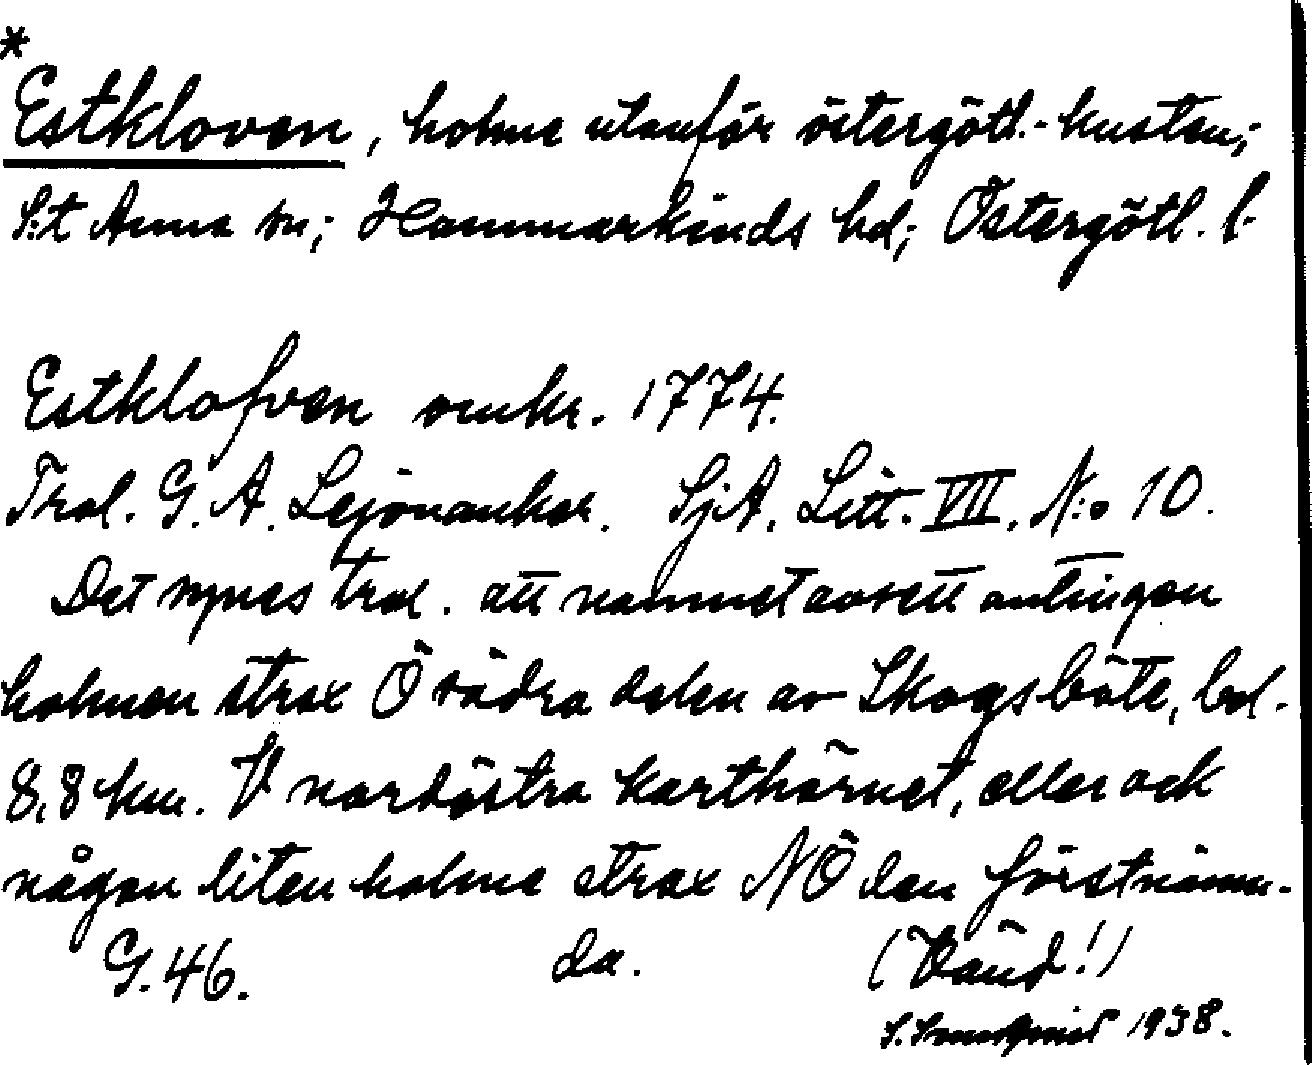 *
Estkloven, holme utanför östergötl.-kusten;
S:t Anna sn; Hammarkinds hd; Östergötl. l.
Estklofven omkr. 1774.
Trol. G. A. Lejonankar. SjA. Litt. VII. N:o 10.
Det synes trol. att namnet avsett antingen
holmen strax Ö södra delen av Skogsböte, bel.
8,8 km. V nordöstra karthörnet, eller ock
någon liten holme strax NÖ den förstnämn-
G.46. da. (Vänd!)
1938.